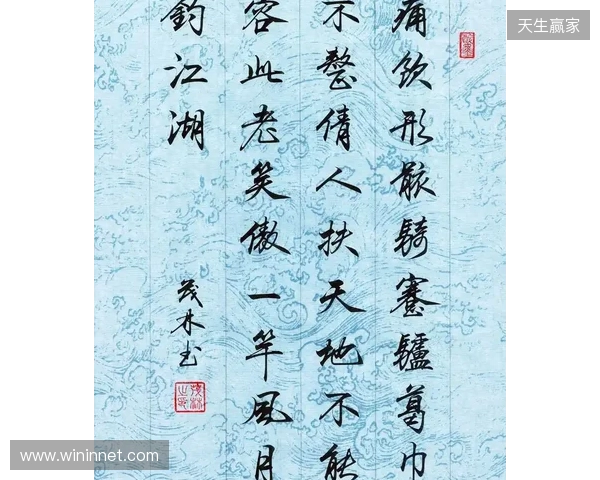 天生赢家
痛飲形骸騎蹇驢葛巾
不整倩人扶天地不能
容此老笑傲一竿風月
釣江湖
茂林书
www.wininnet.com